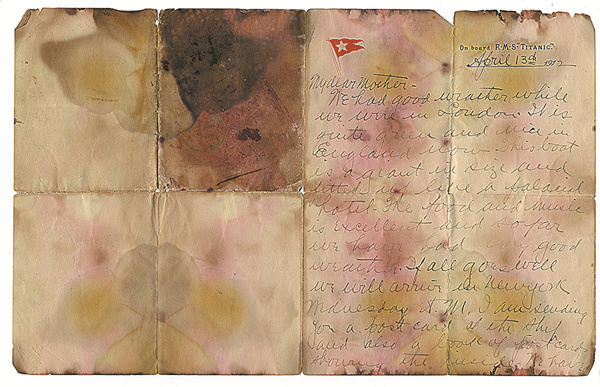 On board R.M.S. "TITANIC".
April 13th 1912
My dear Mother -
We had good weather while
we were in London. It is
quite green and nice in
England now. This boat
is a giant in size and
fitted up like a palacial
hotel. The food and music
is excellent and so far
we have had very good
weather. If all goes well
we will arrive in New York
Wednesday A.M. I am sending
you a post card of the ship
and also a book of post cards
showing the inside.